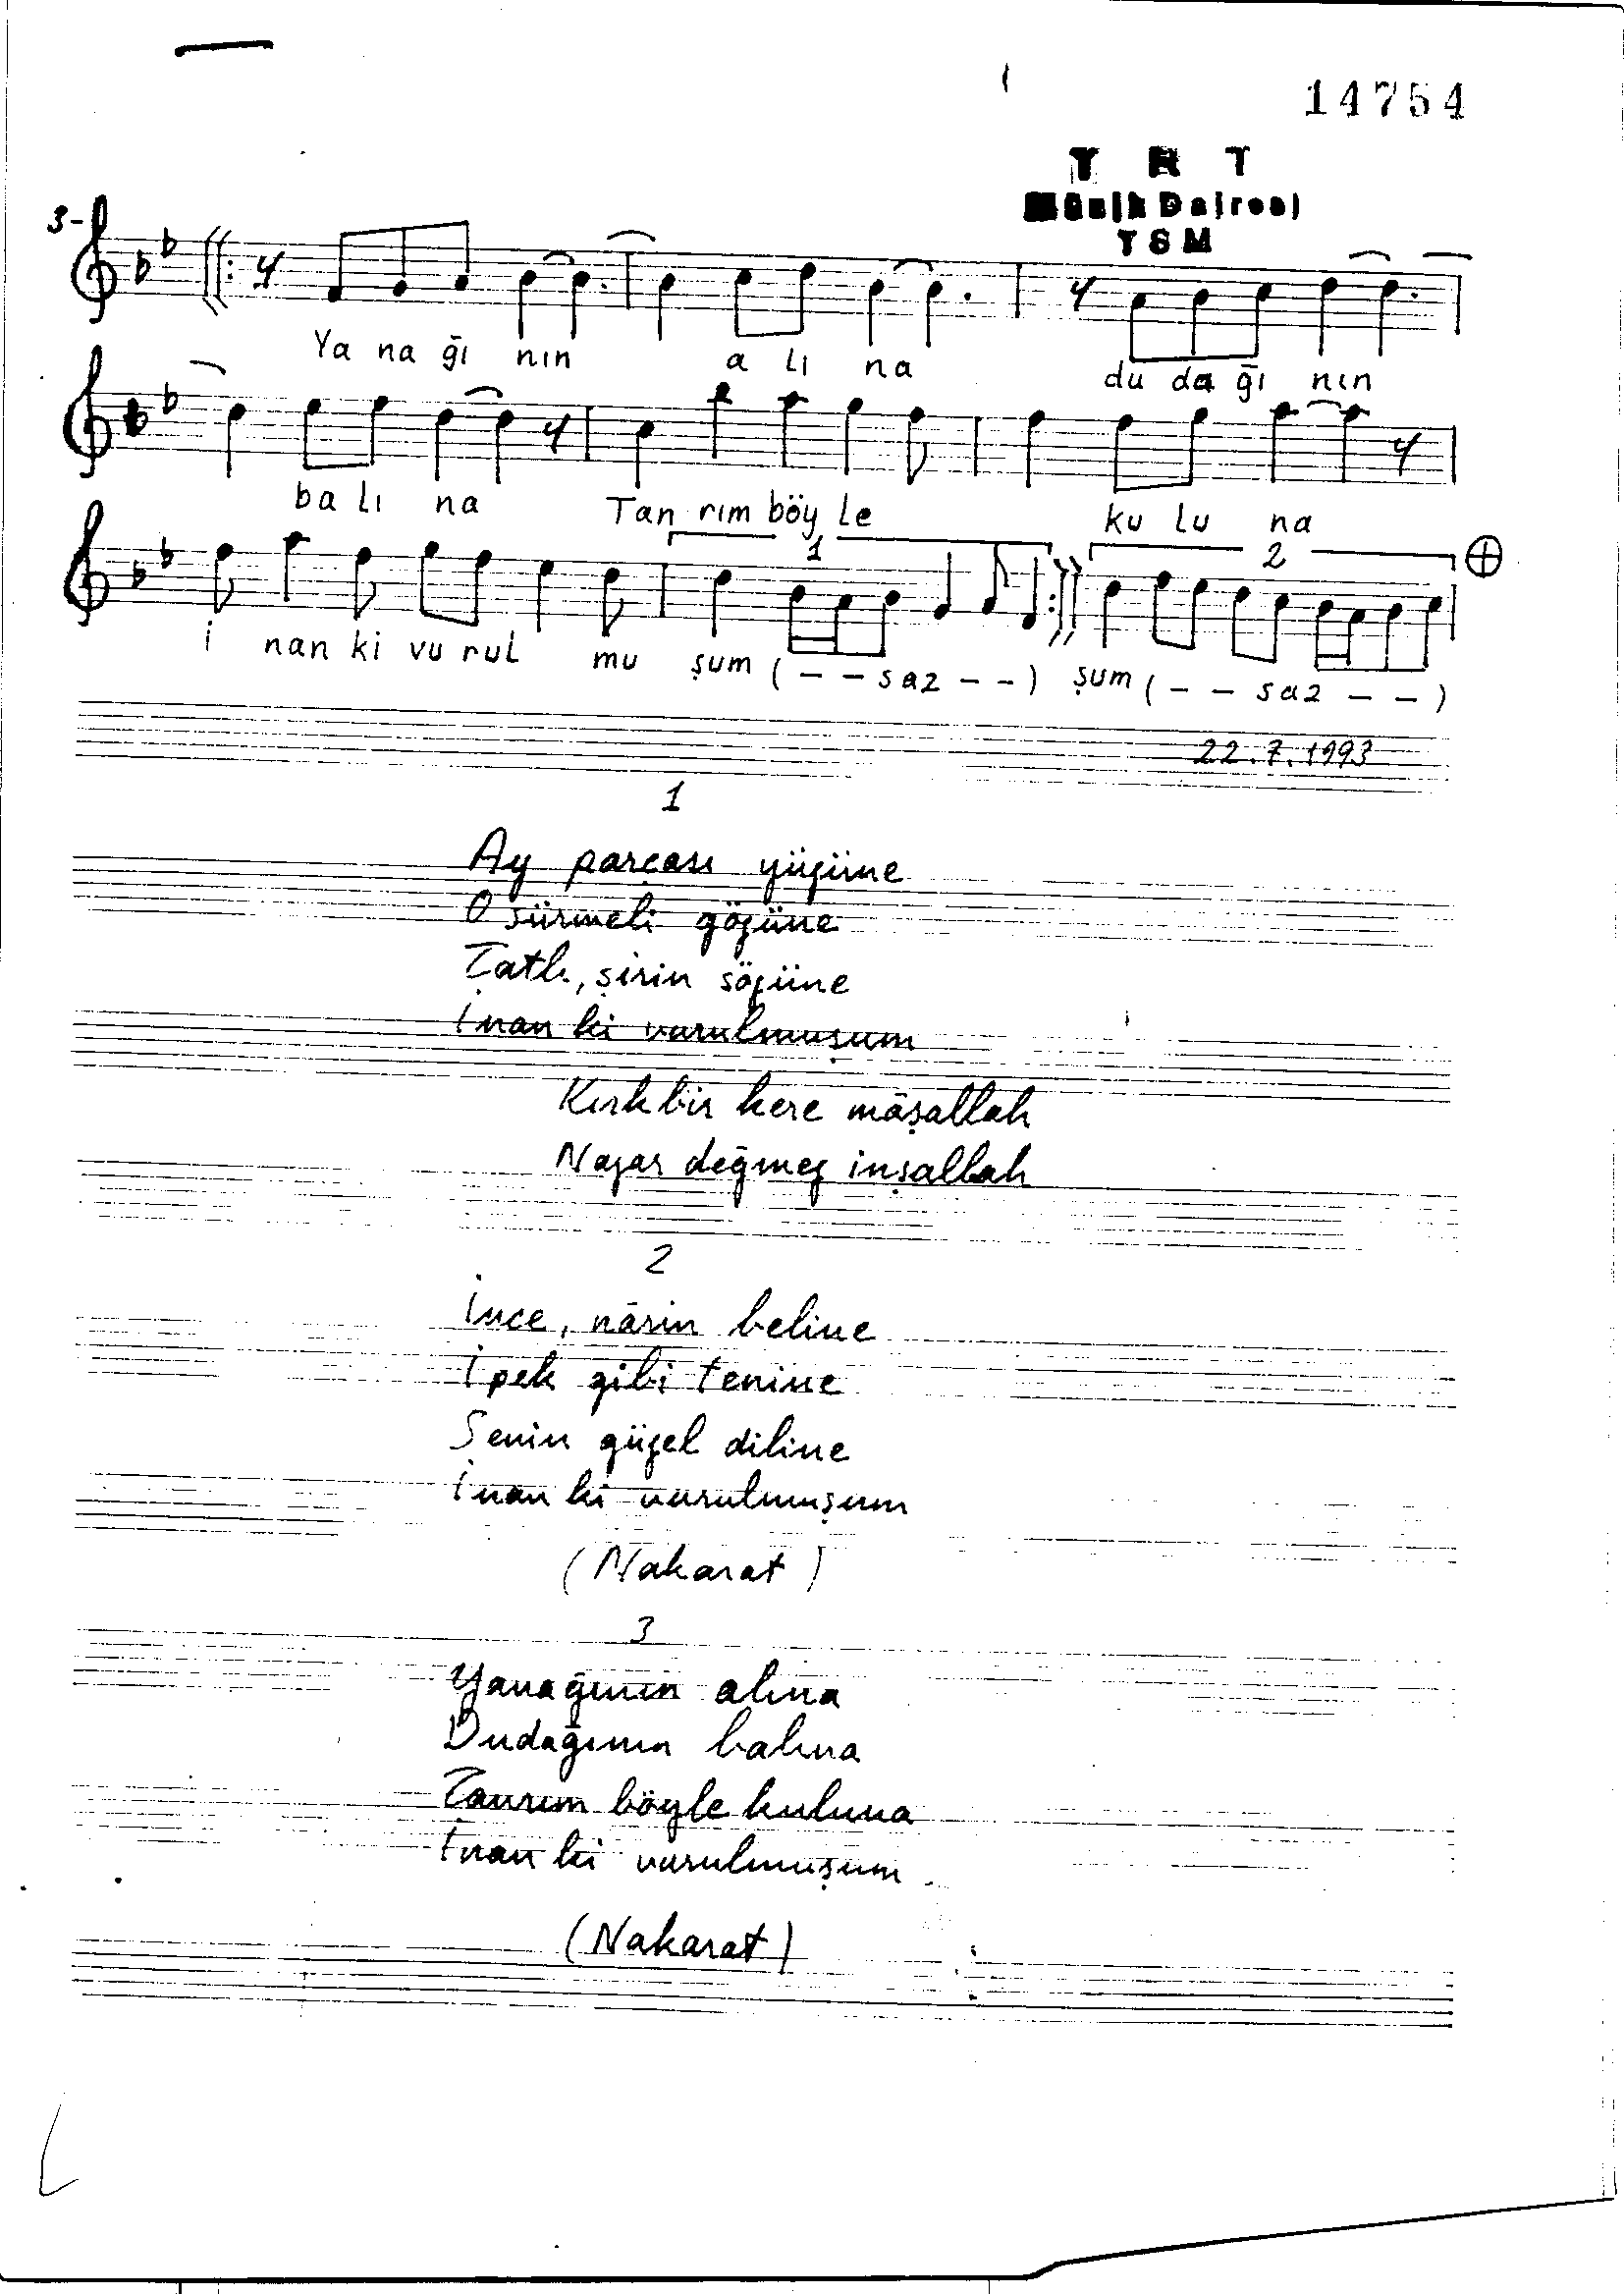 14754
T R T
Müzik Dairesi
T S M
3-
Ya na ğı nın a lı na du da ğı nın
ba lı na Tan rım böy le ku lu na
1 2
i nan ki vu rul mu şum ( - - saz - - ) şum ( - - saz - - )
22.7.1993
1
Ay parçası yüzüne
O sürmeli gözüne
Tatlı, şirin sözüne
İnan ki vurulmuşum
Kırkbir kere mâşallah
Nazar değmez inşallah
2
İnce, nârin beline
İpek gibi tenine
Senin güzel diline
İnan ki vurulmuşum
(Nakarat)
3
Yanağının alına
Dudağının balına
Tanrım böyle kuluna
İnan ki vurulmuşum
(Nakarat)